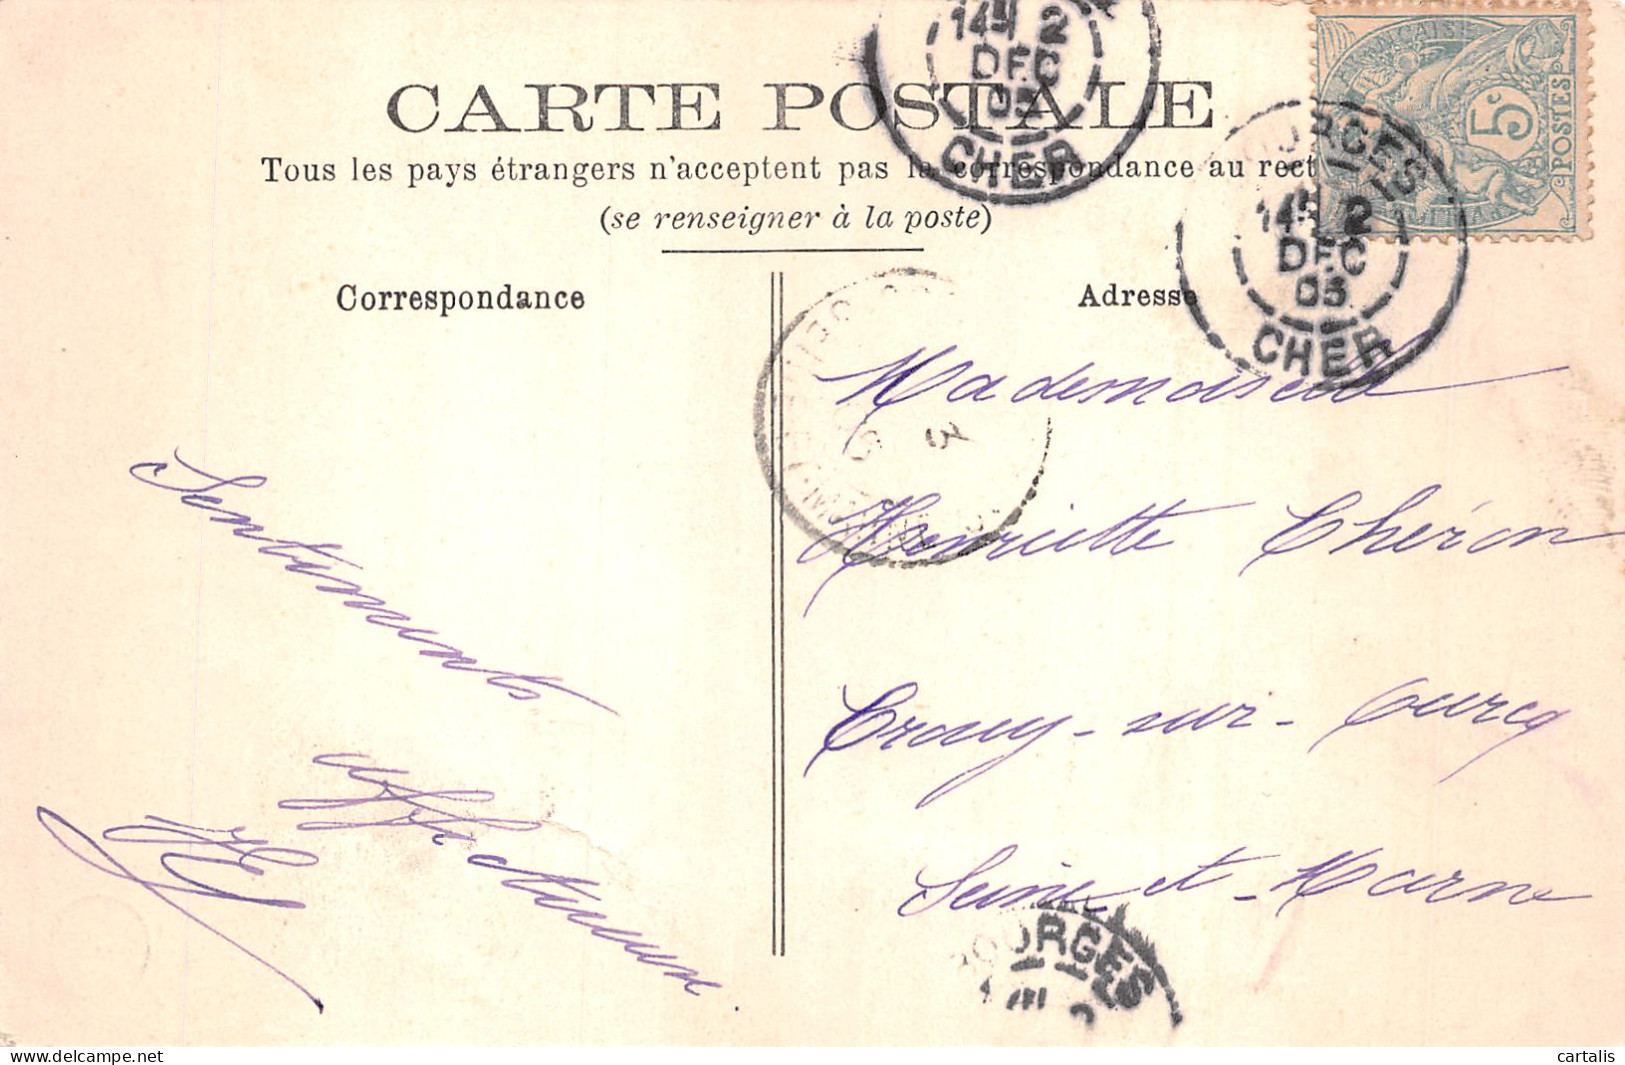 CARTE POSTALE
Tous les pays étrangers n'acceptent pas la correspondance au rect
(se renseigner à la poste)
Correspondance
Adresse
FRANÇAISE
5c
POSTES
14H 2
DEC
05
CHER
BOURGES
14H 2
DEC
05
CHER
3
Mademoiselle
Henriette Chéron
Crouy-sur-Ourcq
Seine-et-Marne
Sentiments
affectueux
BOURGES
delcampe.net
cartalis